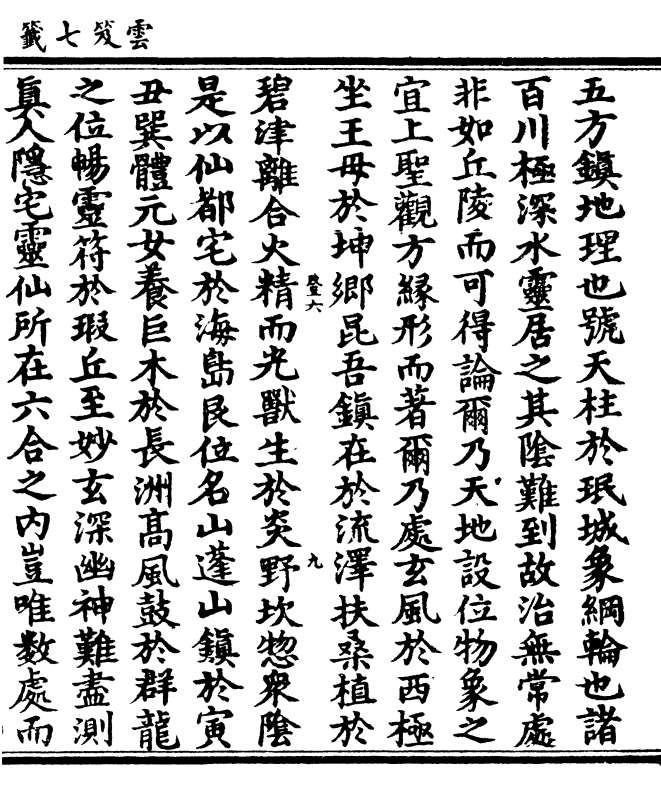 雲笈七籤
五方鎮地理也號天柱於珉城象綱輪也諸
百川極深水靈居之其陰難到故治無常處
非如丘陵而可得論爾乃天地設位物象之
宜上聖觀方緣形而著爾乃處玄風於西極
坐王母於坤鄉昆吾鎮在於流澤扶桑植於
登六
九
碧津離合火精而光獸生於炎野坎惣衆陰
是以仙都宅於海島艮位名山蓬山鎮於寅
丑巽體元女養巨木於長洲高風鼓於群龍
之位暢靈符於瑕丘至妙玄深幽神難盡測
眞人隱宅靈仙所在六合之內豈唯数處而